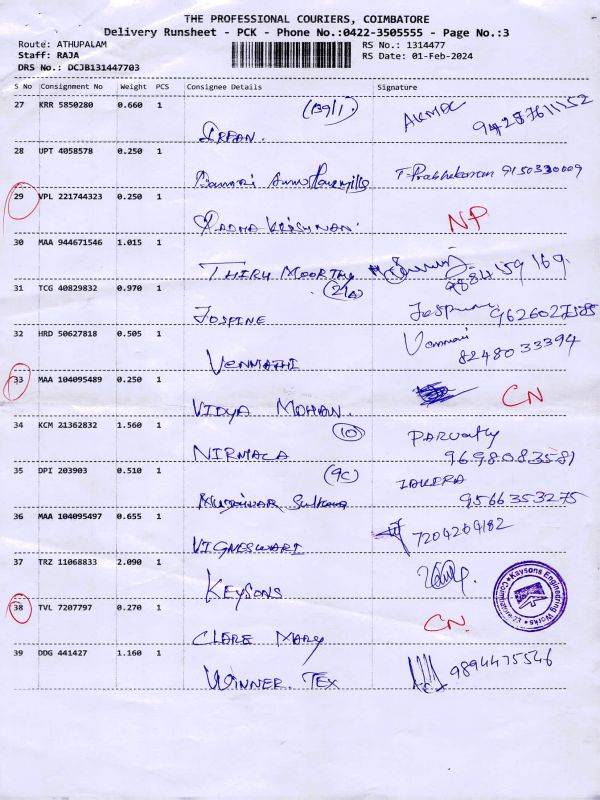 THE PROFESSIONAL COURIERS, COIMBATORE
Delivery Runsheet - PCK - Phone No.:0422-3505555 - Page No.:3
Route: ATHUPALAM
RS No.: 1314477
Staff: RAJA
RS Date: 01-Feb-2024
DRS No.: DCJB131447703
S No Consignment No Weight PCS Consignee Details Signature
27 KRR 5850280 0.660 1 (139/1)
IRFAN.
28 UPT 4058578 0.250 1 T. Prabhakaran 9150330009
Bannari Amman
29 VPL 221744323 0.250 1
RADHA KRISHNAN. NP
30 MAA 944671546 1.015 1
THIRU MOORTHY 9884159169.
31 TCG 40829832 0.970 1 (21A)
JOSPINE 9626027585
32 HRD 50627818 0.505 1
VENMATHI 8248033394
33 MAA 104095489 0.250 1 CN
VIDYA MOHAN.
34 KCM 21362832 1.560 1 (10) Parvathy
NIRMALA 9698083581
35 DPI 203903 0.510 1 (9C) ZAKERA
9566353275
36 MAA 104095497 0.655 1 7204209182
VIGNESWARI
37 TRZ 11068833 2.090 1
KEYSONS
Kaysons Engineering Works
38 TVL 7207797 0.270 1 CN.
CLARE MARY
39 DDG 441427 1.160 1 9894475546
WINNER. TEX